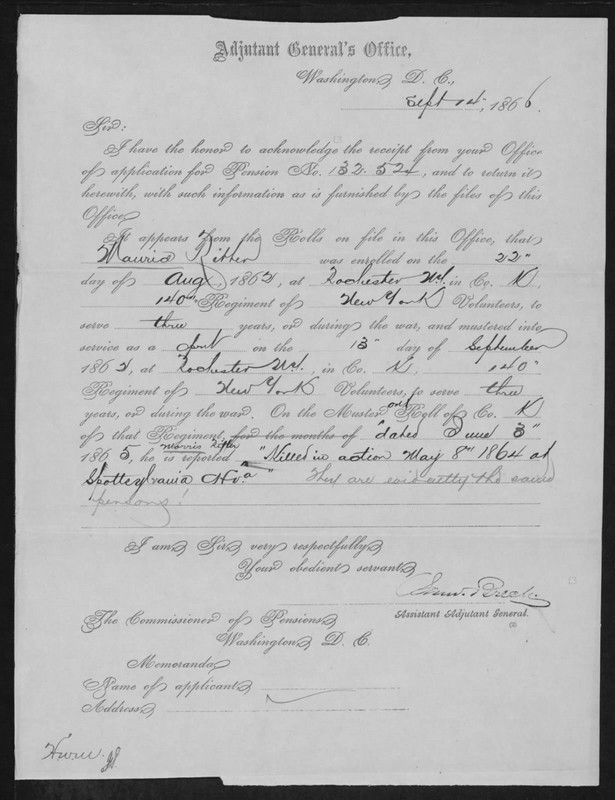 Adjutant General's Office,
Washington, D. C.,
Sept 14, 1866.
Sir:
I have the honor to acknowledge the receipt from your Office
of application for Pension No. 132.524, and to return it
herewith, with such information as is furnished by the files of this
Office.
It appears from the Rolls on file in this Office, that
Maurice Ritter was enrolled on the 22"
day of Aug, 1862, at Rochester N.Y. in Co. K,
140th Regiment of New York Volunteers, to
serve three years, or during the war, and mustered into
service as a on the 13" day of September
1862, at Rochester N.Y., in Co. K, 140"
Regiment of New York Volunteers, to serve three
years, or during the war. On the Muster out Roll of Co. K
of that Regiment, for the months of "dated June 3"
1865, he is reported Morris Ritter "Killed in action May 8th 1864 at
Spottsylvania Va" They are evidently the same
persons!
I am, Sir, very respectfully,
Your obedient servant,
Saml. Breck.
Assistant Adjutant General.
The Commissioner of Pensions,
Washington, D. C.
Memoranda,
Name of applicant,
Address,